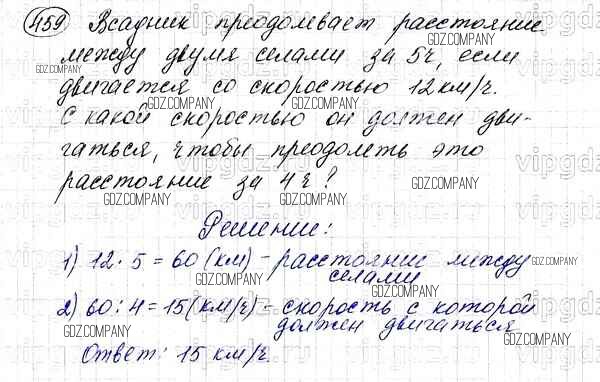 459 Всадник преодолевает расстояние
между двумя селами за 5ч, если
двигается со скоростью 12 км/ч.
С какой скоростью он должен дви-
гаться, чтобы преодолеть это
расстояние за 4 ч?
Решение:
1) 12 · 5 = 60 (км) - расстояние между
селами
2) 60 : 4 = 15 (км/ч) - скорость с которой
должен двигаться
Ответ: 15 км/ч.